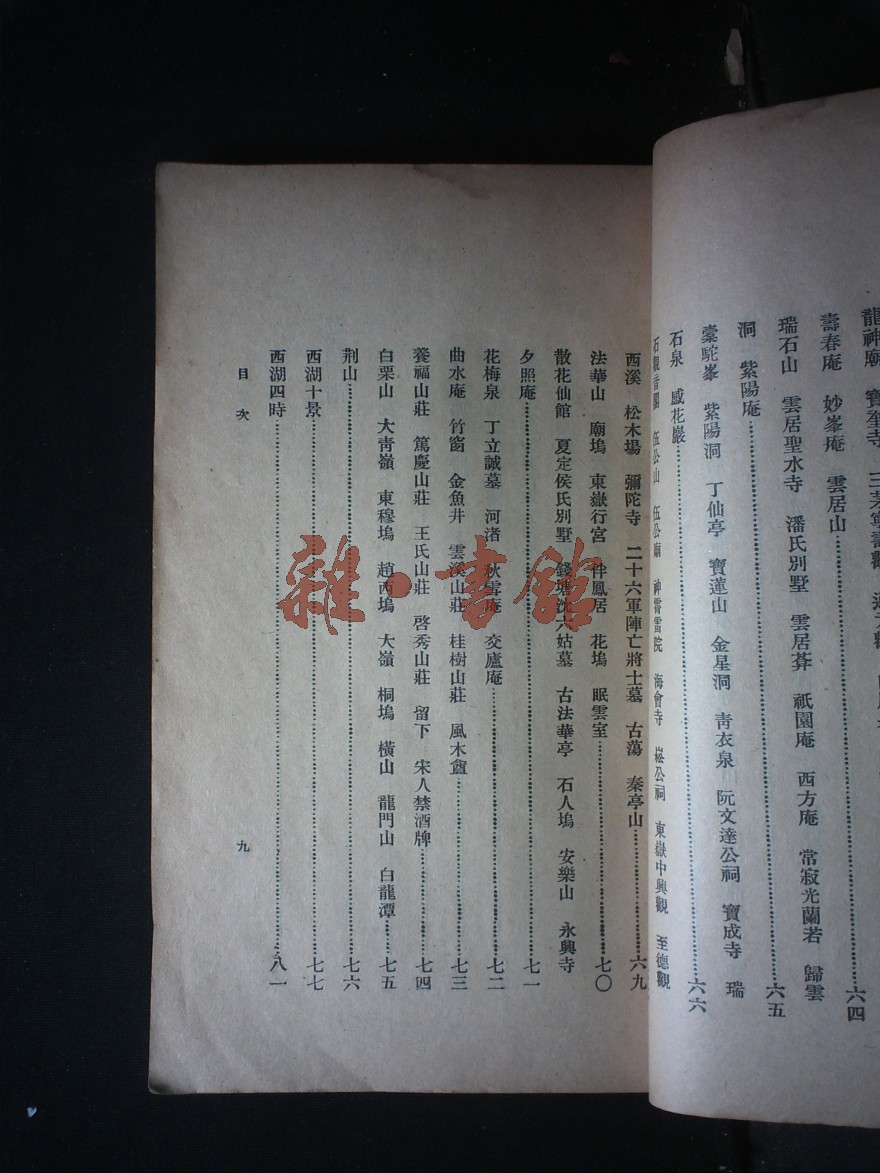 龍神廟 寶
壽春庵 妙峯庵 雲居山……六四
瑞石山 雲居聖水寺 潘氏別墅 雲居菴 祇園庵 西方庵 常寂光蘭若 歸雲
洞 紫陽庵……六五
橐駝峯 紫陽洞 丁仙亭 寶蓮山 金星洞 靑衣泉 阮文達公祠 寶成寺 瑞
石泉 感花巖……六六
石觀音閣 伍公山 伍公廟 神霄雷院 海會寺 崧公祠 東嶽中興觀 至德觀
西溪 松木場 彌陀寺 二十六軍陣亡將士墓 古蕩 秦亭山……六九
法華山 廟塢 東嶽行宮 伴鳳居 花塢 眠雲室……七〇
散花仙館 夏定侯氏別墅 錢塘沈六姑墓 古法華亭 石人塢 安樂山 永興寺
夕照庵……七一
花梅泉 丁立誠墓 河渚 秋雪庵 交廬庵……七二
曲水庵 竹窗 金魚井 雲溪山莊 桂樹山莊 風木盦……七三
養福山莊 篤慶山莊 王氏山莊 啓秀山莊 留下 宋人禁酒牌……七四
白栗山 大靑嶺 東穆塢 趙西塢 大嶺 桐塢 橫山 龍門山 白龍潭……七五
荆山……七六
西湖十景……七七
西湖四時……八一
目次
九
雜·書館